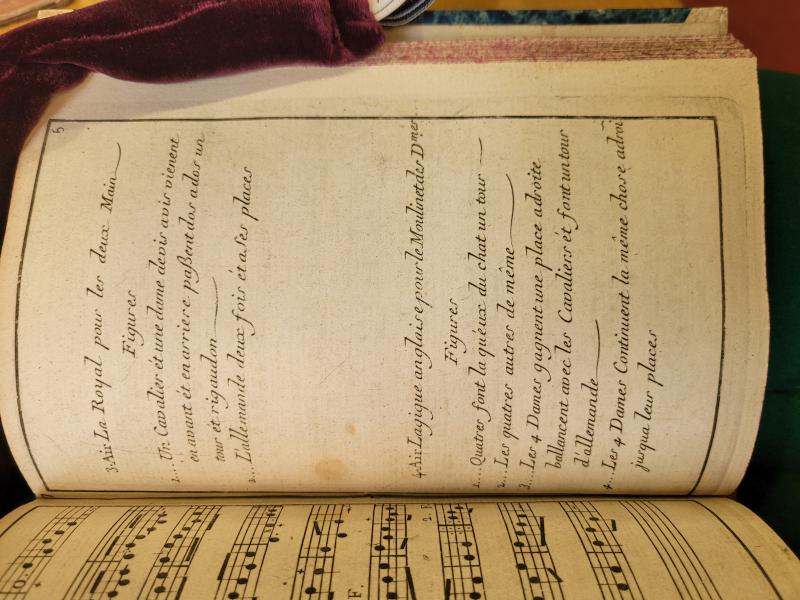 5
3. Air La Royal pour les deux Main
Figures
1.... Un Cavalier ét une dame devis avis vienent
en avant ét en arriere paßent dos a dos un
tour ét rigaudon
2.... L'allemande deux fois ét a ses places
4. Air La gique anglaise pour le Moulinet des Dmes
Figures
1.... Quatres font la quéux du chat un tour
2.... Les quatres autres de même
3.... Les 4 Dames gagnent une place adroite
ballancent avec les Cavaliers ét font un tour
d'allemande
4.... Les 4 Dames Continuent la même chose adroi
jusqua leur places
F.
2. F.